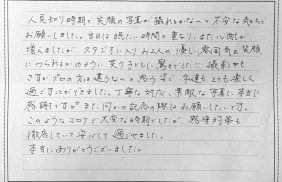 人見知り時期で笑顔の写真が撮れるかな～と不安な気持ちで
お願いしました。当日は眠たい時間と重なり、また心配が
増えましたが、スタジオに入りお2人の優しい雰囲気と笑顔
につられるかのように笑う子どもに驚きでした!! 撮影中も
さすがプロの方は違うな～と思う事で 私達もとても楽しく
過ごすことができました。丁寧な対応、素敵な写真に本当に
感謝です。また何かの記念の際はお願いしたいです。
このようなコロナで大変な時期でしたが、感染対策も
徹底していて安心して過ごせました。
本当にありがとうございました。